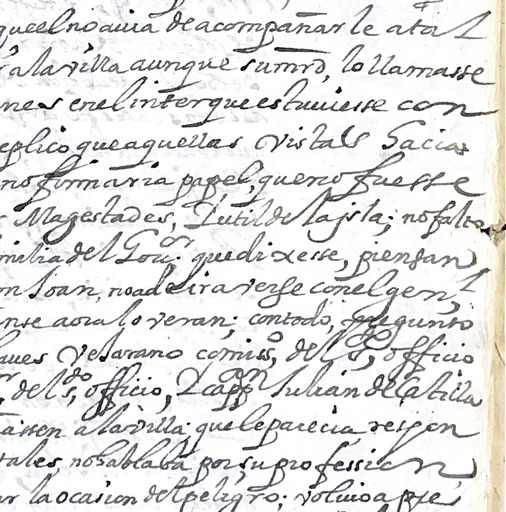 que el no auia de acompañarle a tal
a la villa aunque su mrd, lo llamasse
nes en el inter que estuuiesse con
eplico que aquellas vistas hacia
no firmaria papel, que no fuesse
s Magestades, y util de la jsla; no falto
milia del Gour. que dixesse, piensan
n Joan, no a de ir a verse con el genl
anse aora lo veran; con todo, pregunto
laues Velarano comisso, del So, officio
, del sto, officio, y cappn Julian de Catilla
assen a la villa; que le parecia, respon
tales, no hablaba por su profession
ar la ocasion del peligro; voluio a pre